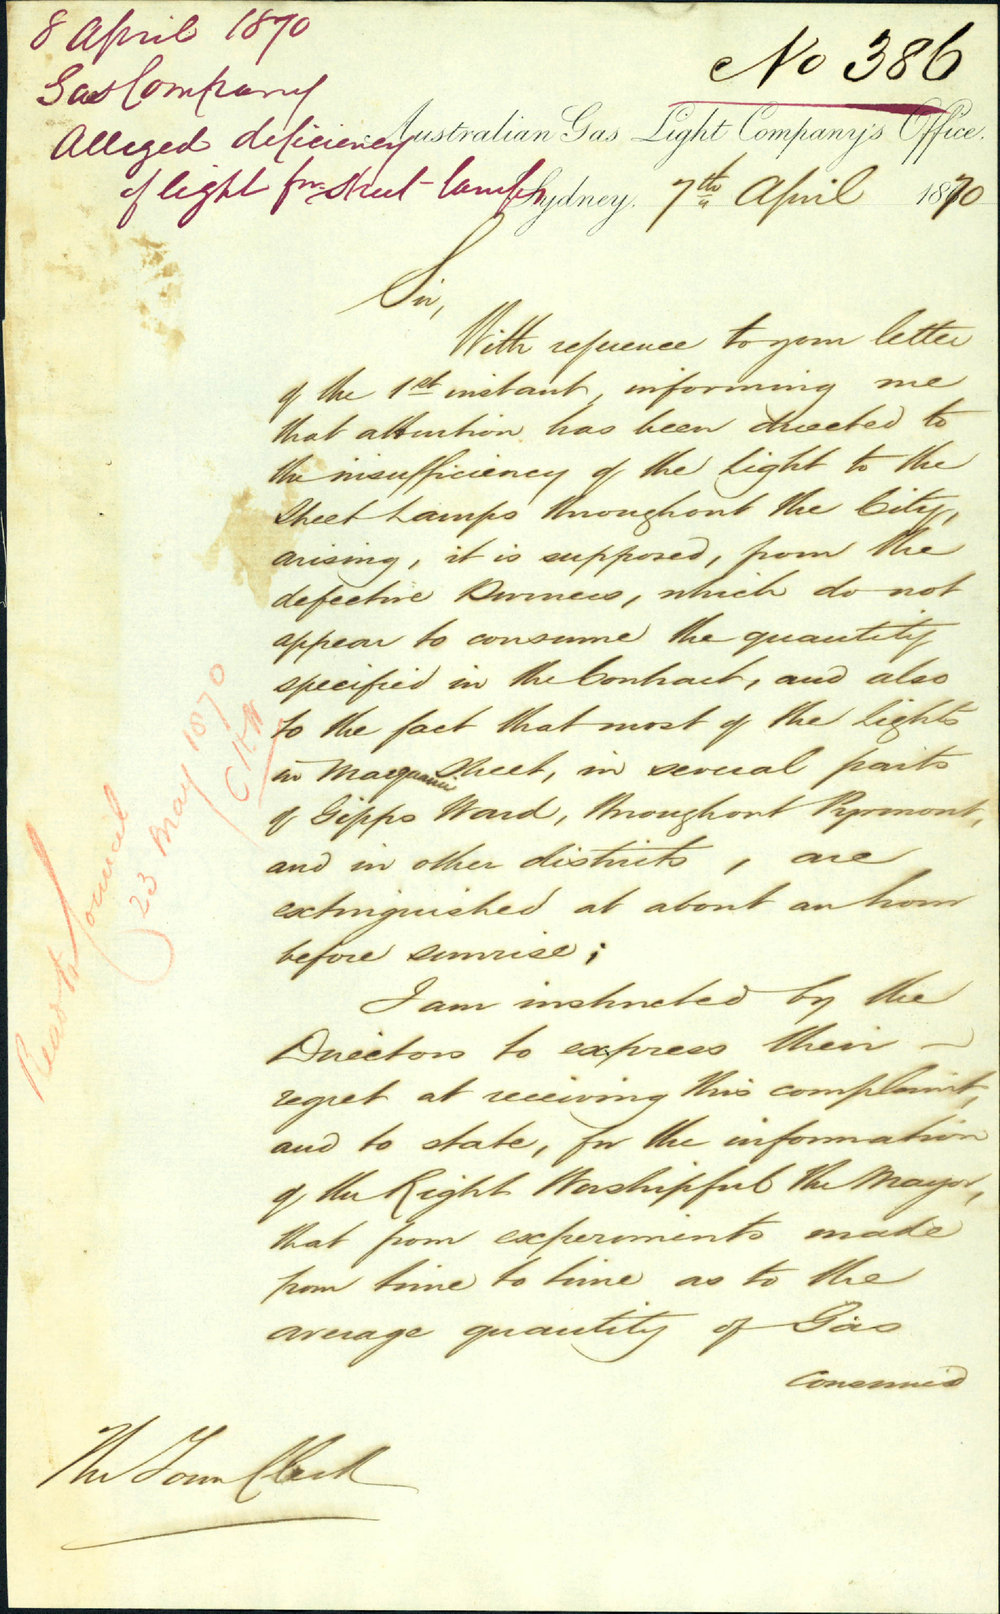 8 April 1870
Gas Company
Alleged deficiency
of light from street-lamps
No 386
Australian Gas Light Company's Office.
Sydney. 7th April 1870
Sir,
With reference to your letter
of the 1st instant, informing me
that attention has been directed to
the insufficiency of the Light to the
Street Lamps throughout the City,
arising, it is supposed, from the
defective Burners, which do not
appear to consume the quantity
specified in the Contract, and also
to the fact that most of the lights
in Macquarie Street, in several parts
of Gipps Ward, throughout Pyrmont,
and in other districts, are
extinguished at about an hour
before sunrise;
I am instructed by the
Directors to express their
regret at receiving this complaint,
and to state, for the information
of the Right Worshipful the Mayor,
that from experiments made
from time to time as to the
average quantity of Gas
consumed
The Town Clerk
Read to Council
23 May 1870